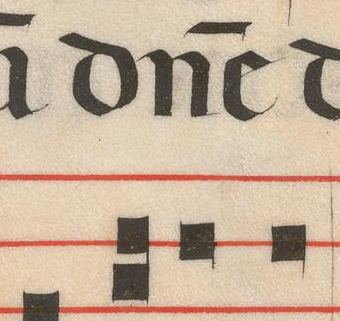 ā dn̄e d